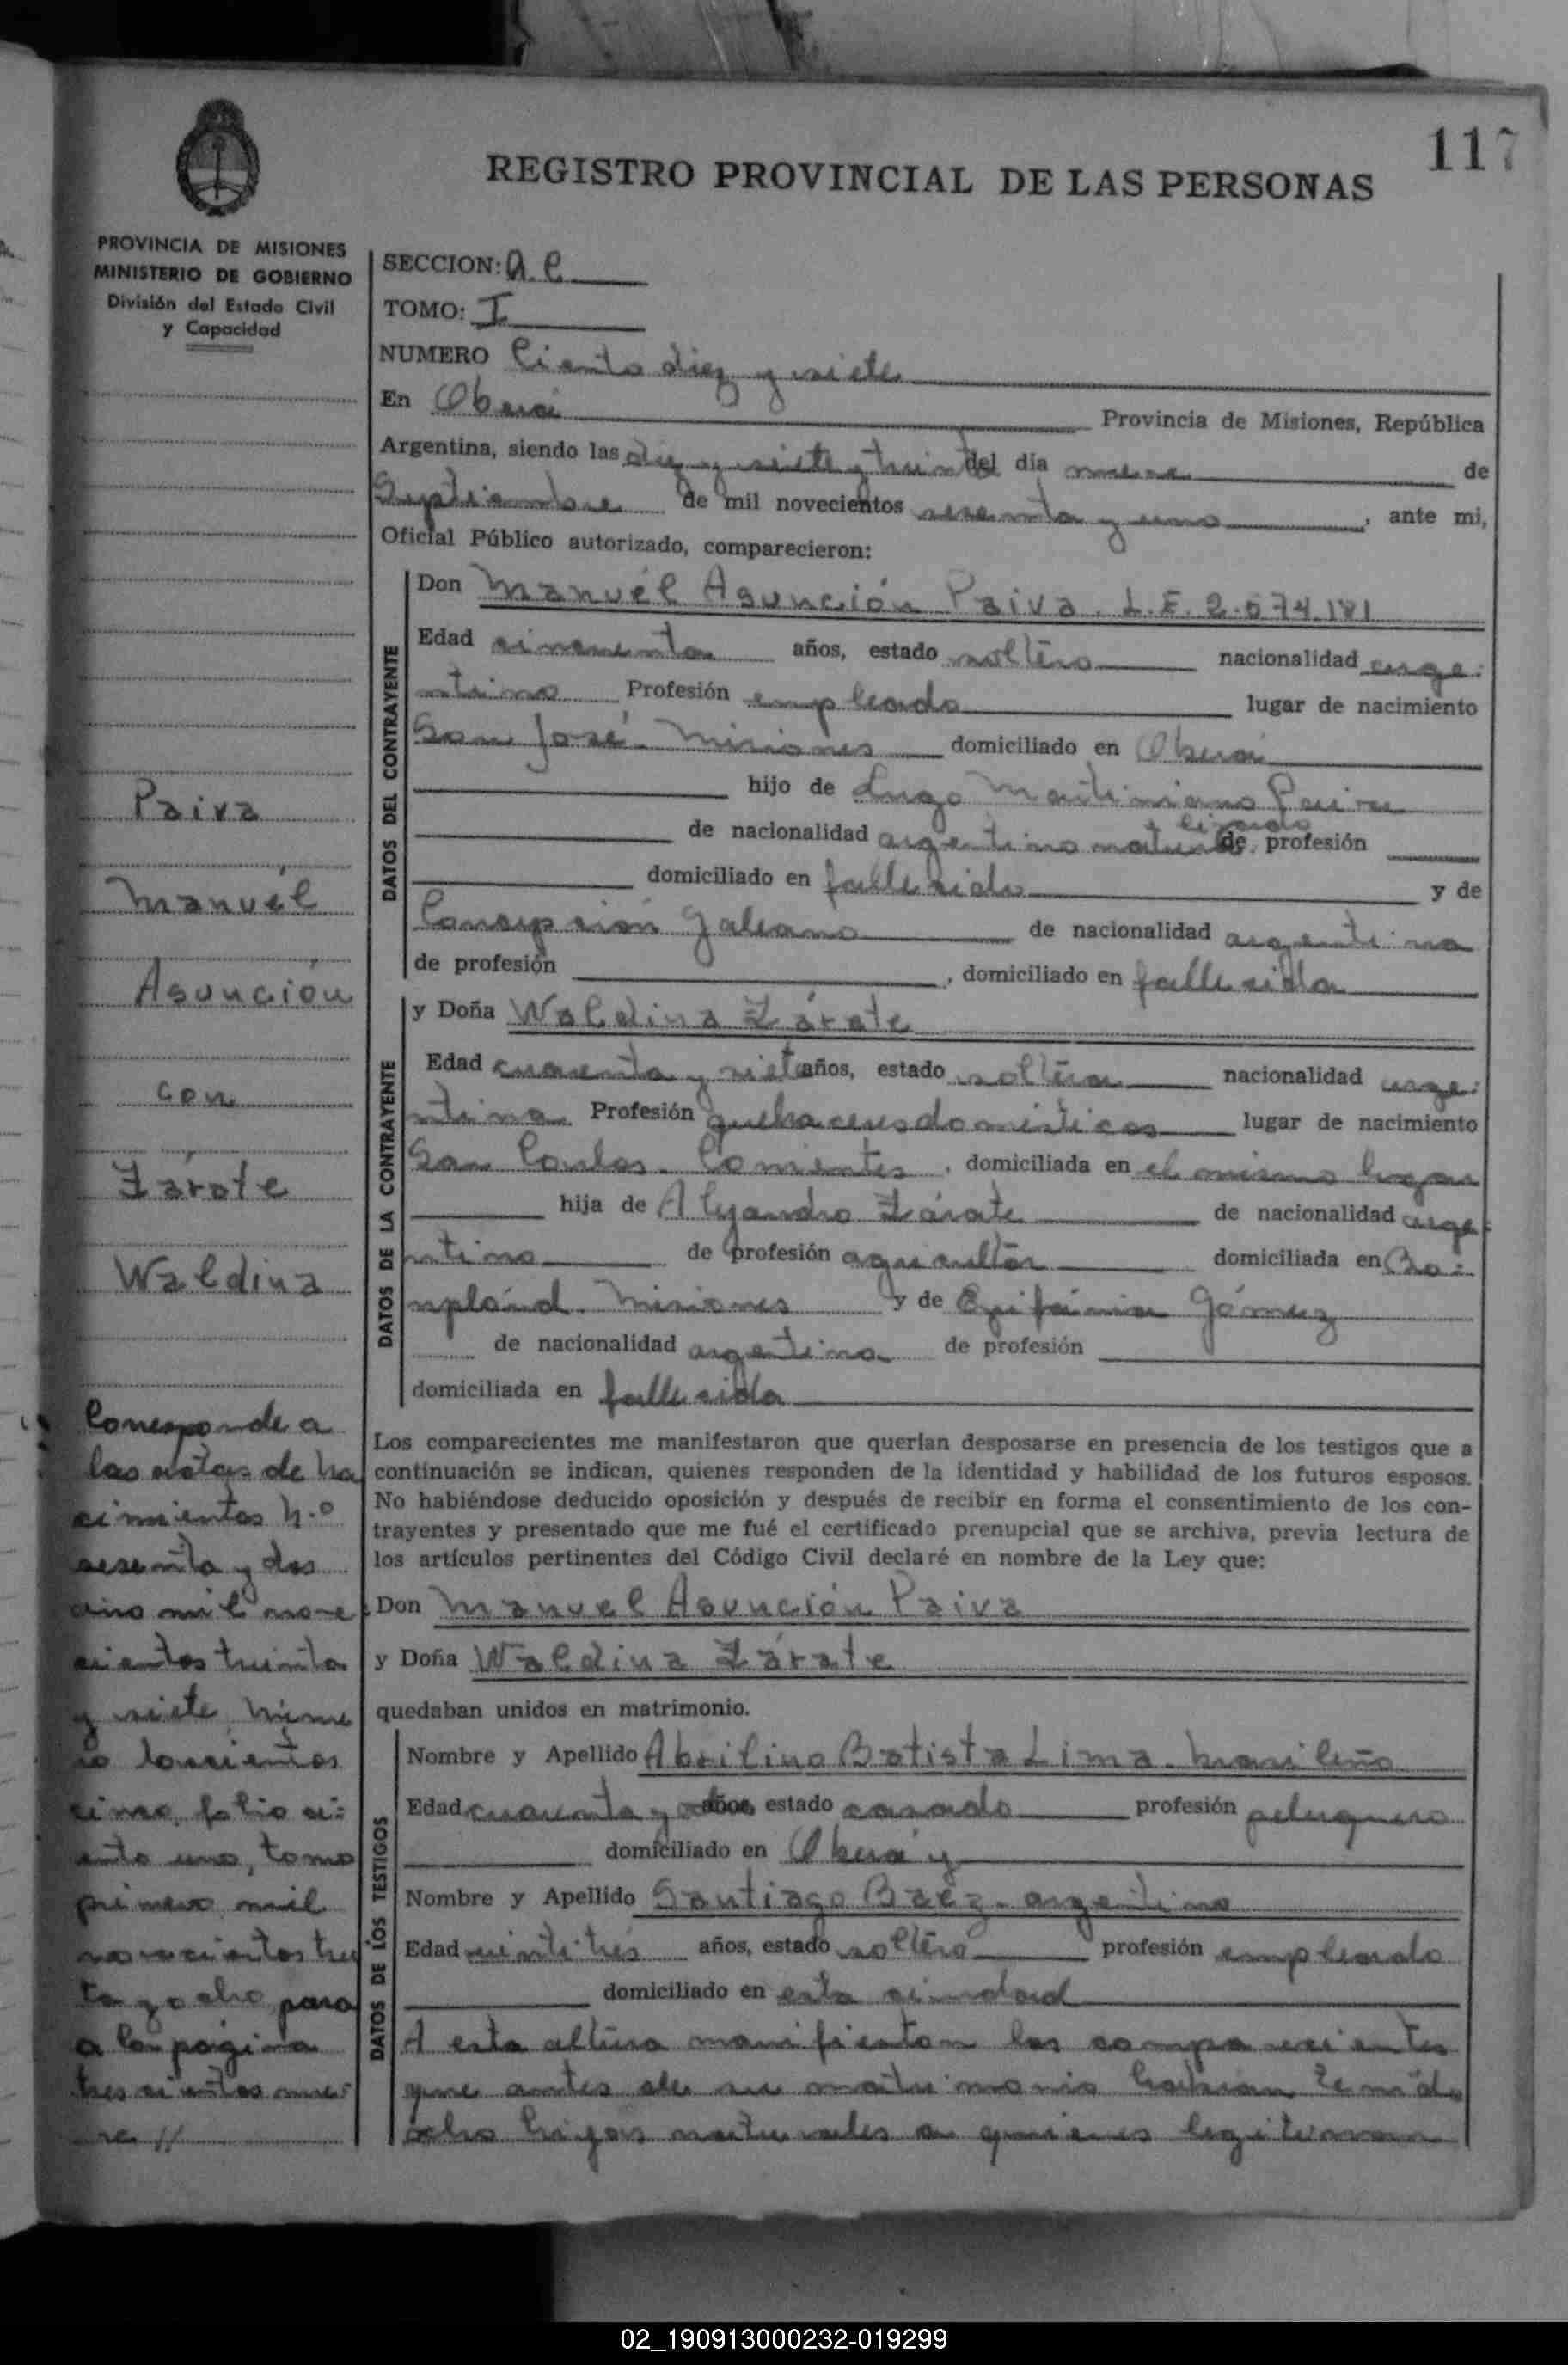 117
REGISTRO PROVINCIAL DE LAS PERSONAS
PROVINCIA DE MISIONES
MINISTERIO DE GOBIERNO
División del Estado Civil
y Capacidad
SECCION: A. C
TOMO: I
NUMERO Ciento diez y siete
En Oberá Provincia de Misiones, República
Argentina, siendo las diez y siete y treinta del día nueve de
Septiembre de mil novecientos sesenta y uno, ante mi,
Oficial Público autorizado, comparecieron:
DATOS DEL CONTRAYENTE
Don Manuel Asunción Paiva. L.E. 2.574.181
Edad cincuenta años, estado soltero nacionalidad arge-
ntino Profesión empleado lugar de nacimiento
San José. Misiones domiciliado en Oberá
hijo de Lugo Martiniano Paiva
de nacionalidad argentino de profesión
domiciliado en fallecido y de
Concepción Galeano de nacionalidad argentina
de profesión , domiciliado en fallecida
DATOS DE LA CONTRAYENTE
y Doña Waldina Zárate
Edad cuarenta y siete años, estado soltera nacionalidad arge-
ntina Profesión quehaceres domésticos lugar de nacimiento
San Carlos. Corrientes, domiciliada en el mismo lugar
hija de Alejandro Zárate de nacionalidad arge-
ntino de profesión agricultor domiciliada en Bo-
npland. Misiones y de Epifania Gómez
de nacionalidad argentina de profesión
domiciliada en fallecida
Los comparecientes me manifestaron que querían desposarse en presencia de los testigos que a
continuación se indican, quienes responden de la identidad y habilidad de los futuros esposos.
No habiéndose deducido oposición y después de recibir en forma el consentimiento de los con-
trayentes y presentado que me fué el certificado prenupcial que se archiva, previa lectura de
los artículos pertinentes del Código Civil declaré en nombre de la Ley que:
Don Manuel Asunción Paiva
y Doña Waldina Zárate
quedaban unidos en matrimonio.
DATOS DE LOS TESTIGOS
Nombre y Apellido Abrilino Batista Lima. brasileño
Edad cuarenta y años estado casado profesión peluquero
domiciliado en Oberá y
Nombre y Apellido Santiago Baez. argentino
Edad veintitrés años, estado soltero profesión empleado
domiciliado en esta ciudad
A esta altura manifiestan los comparecientes
que antes de su matrimonio habían tenido
ocho hijos naturales a quienes legitiman
Paiva
Manuel
Asunción
con
Zárate
Waldina
Corresponde a
las actas de na
cimientos N.o
sesenta y dos
año mil nove
cientos treinta
y siete, núme
ro
cinco, folio ci-
ento uno, tomo
primero mil
novecientos trei
ta y ocho pasa
a la página
trescientos nue-
ve //
02_190913000232-019299